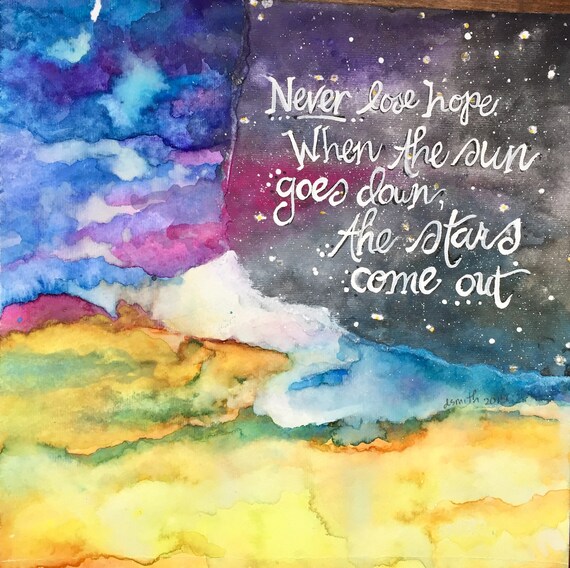 Never lose hope.
When the sun
goes down,
the stars
come out
dsmith